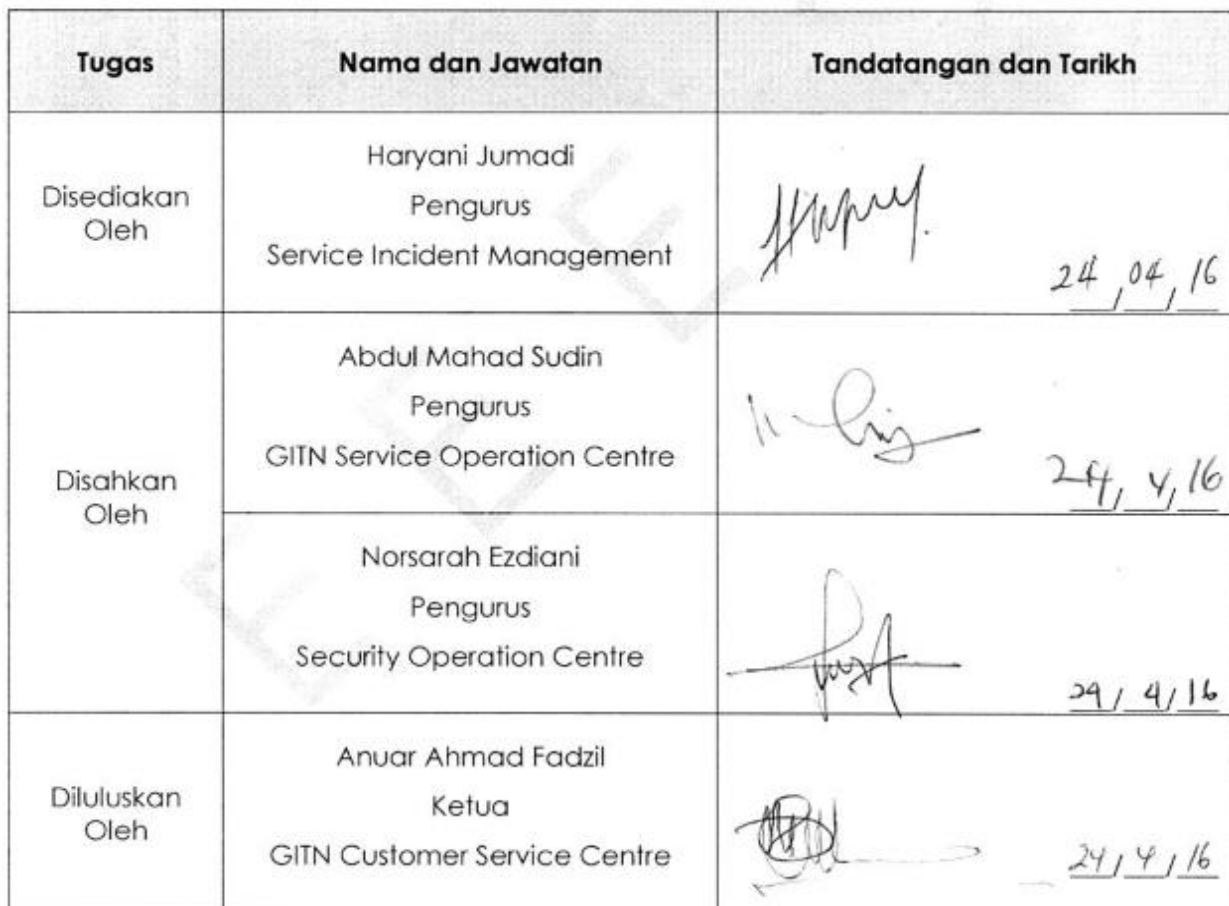 Tugas
Nama dan Jawatan
Tandatangan dan Tarikh
Disediakan
Oleh
Haryani Jumadi
Pengurus
Service Incident Management
24/04/16
Disahkan
Oleh
Abdul Mahad Sudin
Pengurus
GITN Service Operation Centre
24/4/16
Norsarah Ezdiani
Pengurus
Security Operation Centre
/4/16
Diluluskan
Oleh
Anuar Ahmad Fadzil
Ketua
GITN Customer Service Centre
24/4/16